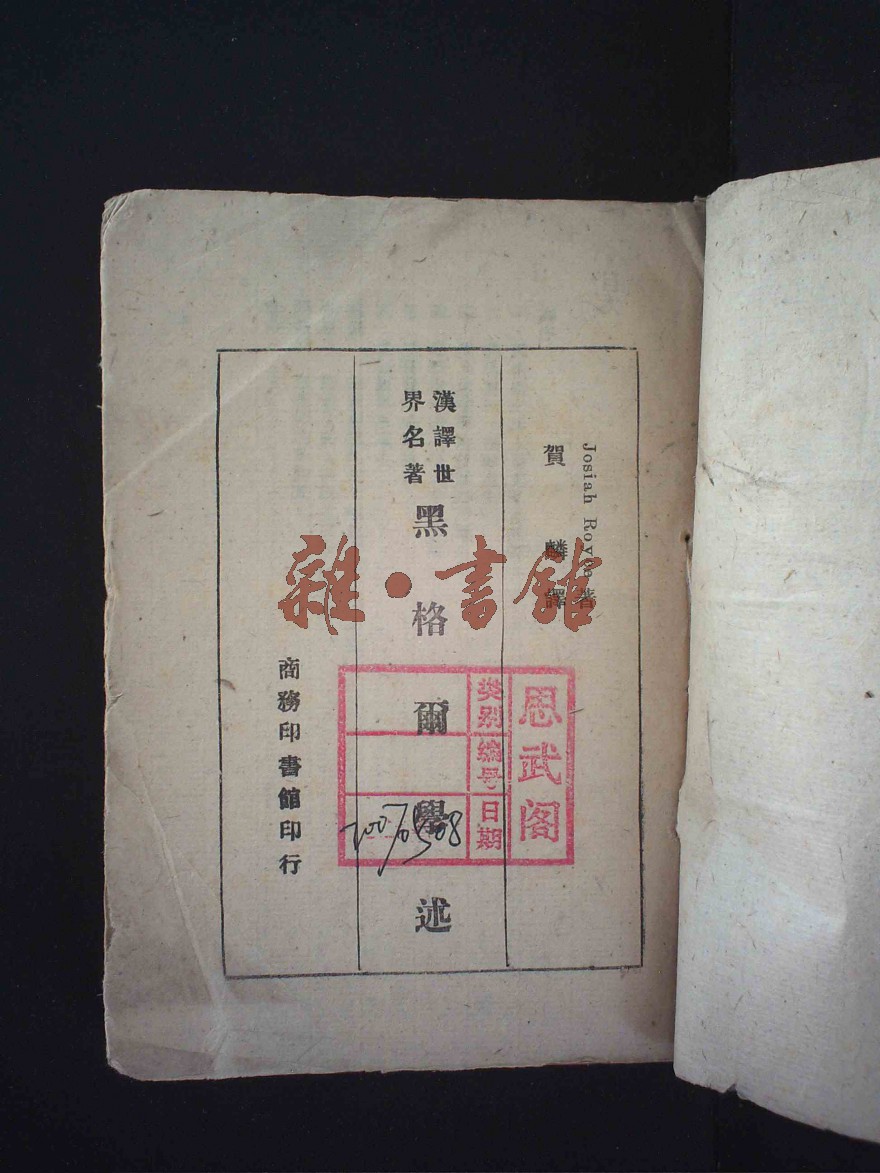 Josiah Royce著
賀麟譯
漢譯世
界名著
黑格爾學述
商務印書館印行
雜·書館
思武阁
类别
编号
日期
2007/05/08